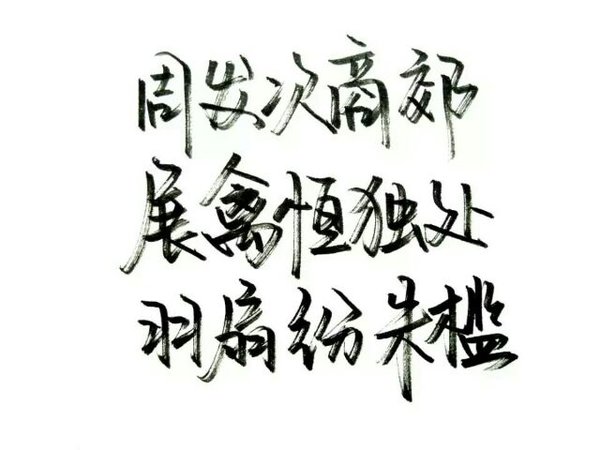 周发次商郊
展禽恒独处
羽扇纷朱槛